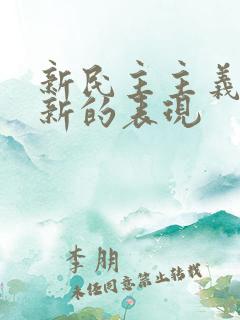 新民主主义
新的表现
李朋
未经同意禁止转载